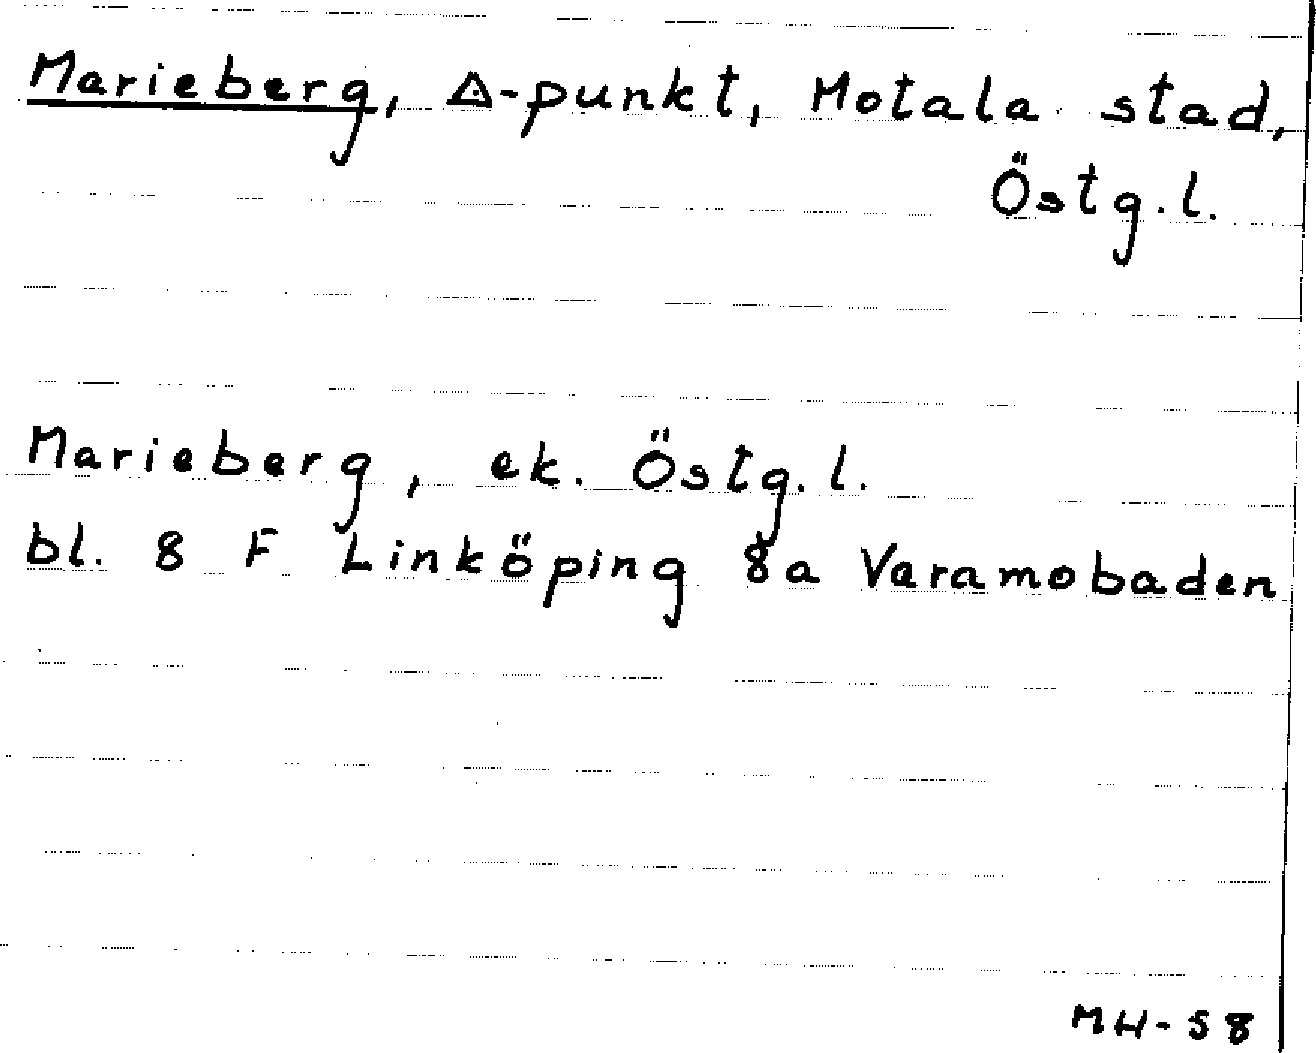 Marieberg, △-punkt, Motala stad,
Östg.l.
Marieberg, ek. Östg.l.
bl. 8 F Linköping 8a Varamobaden
MH-58